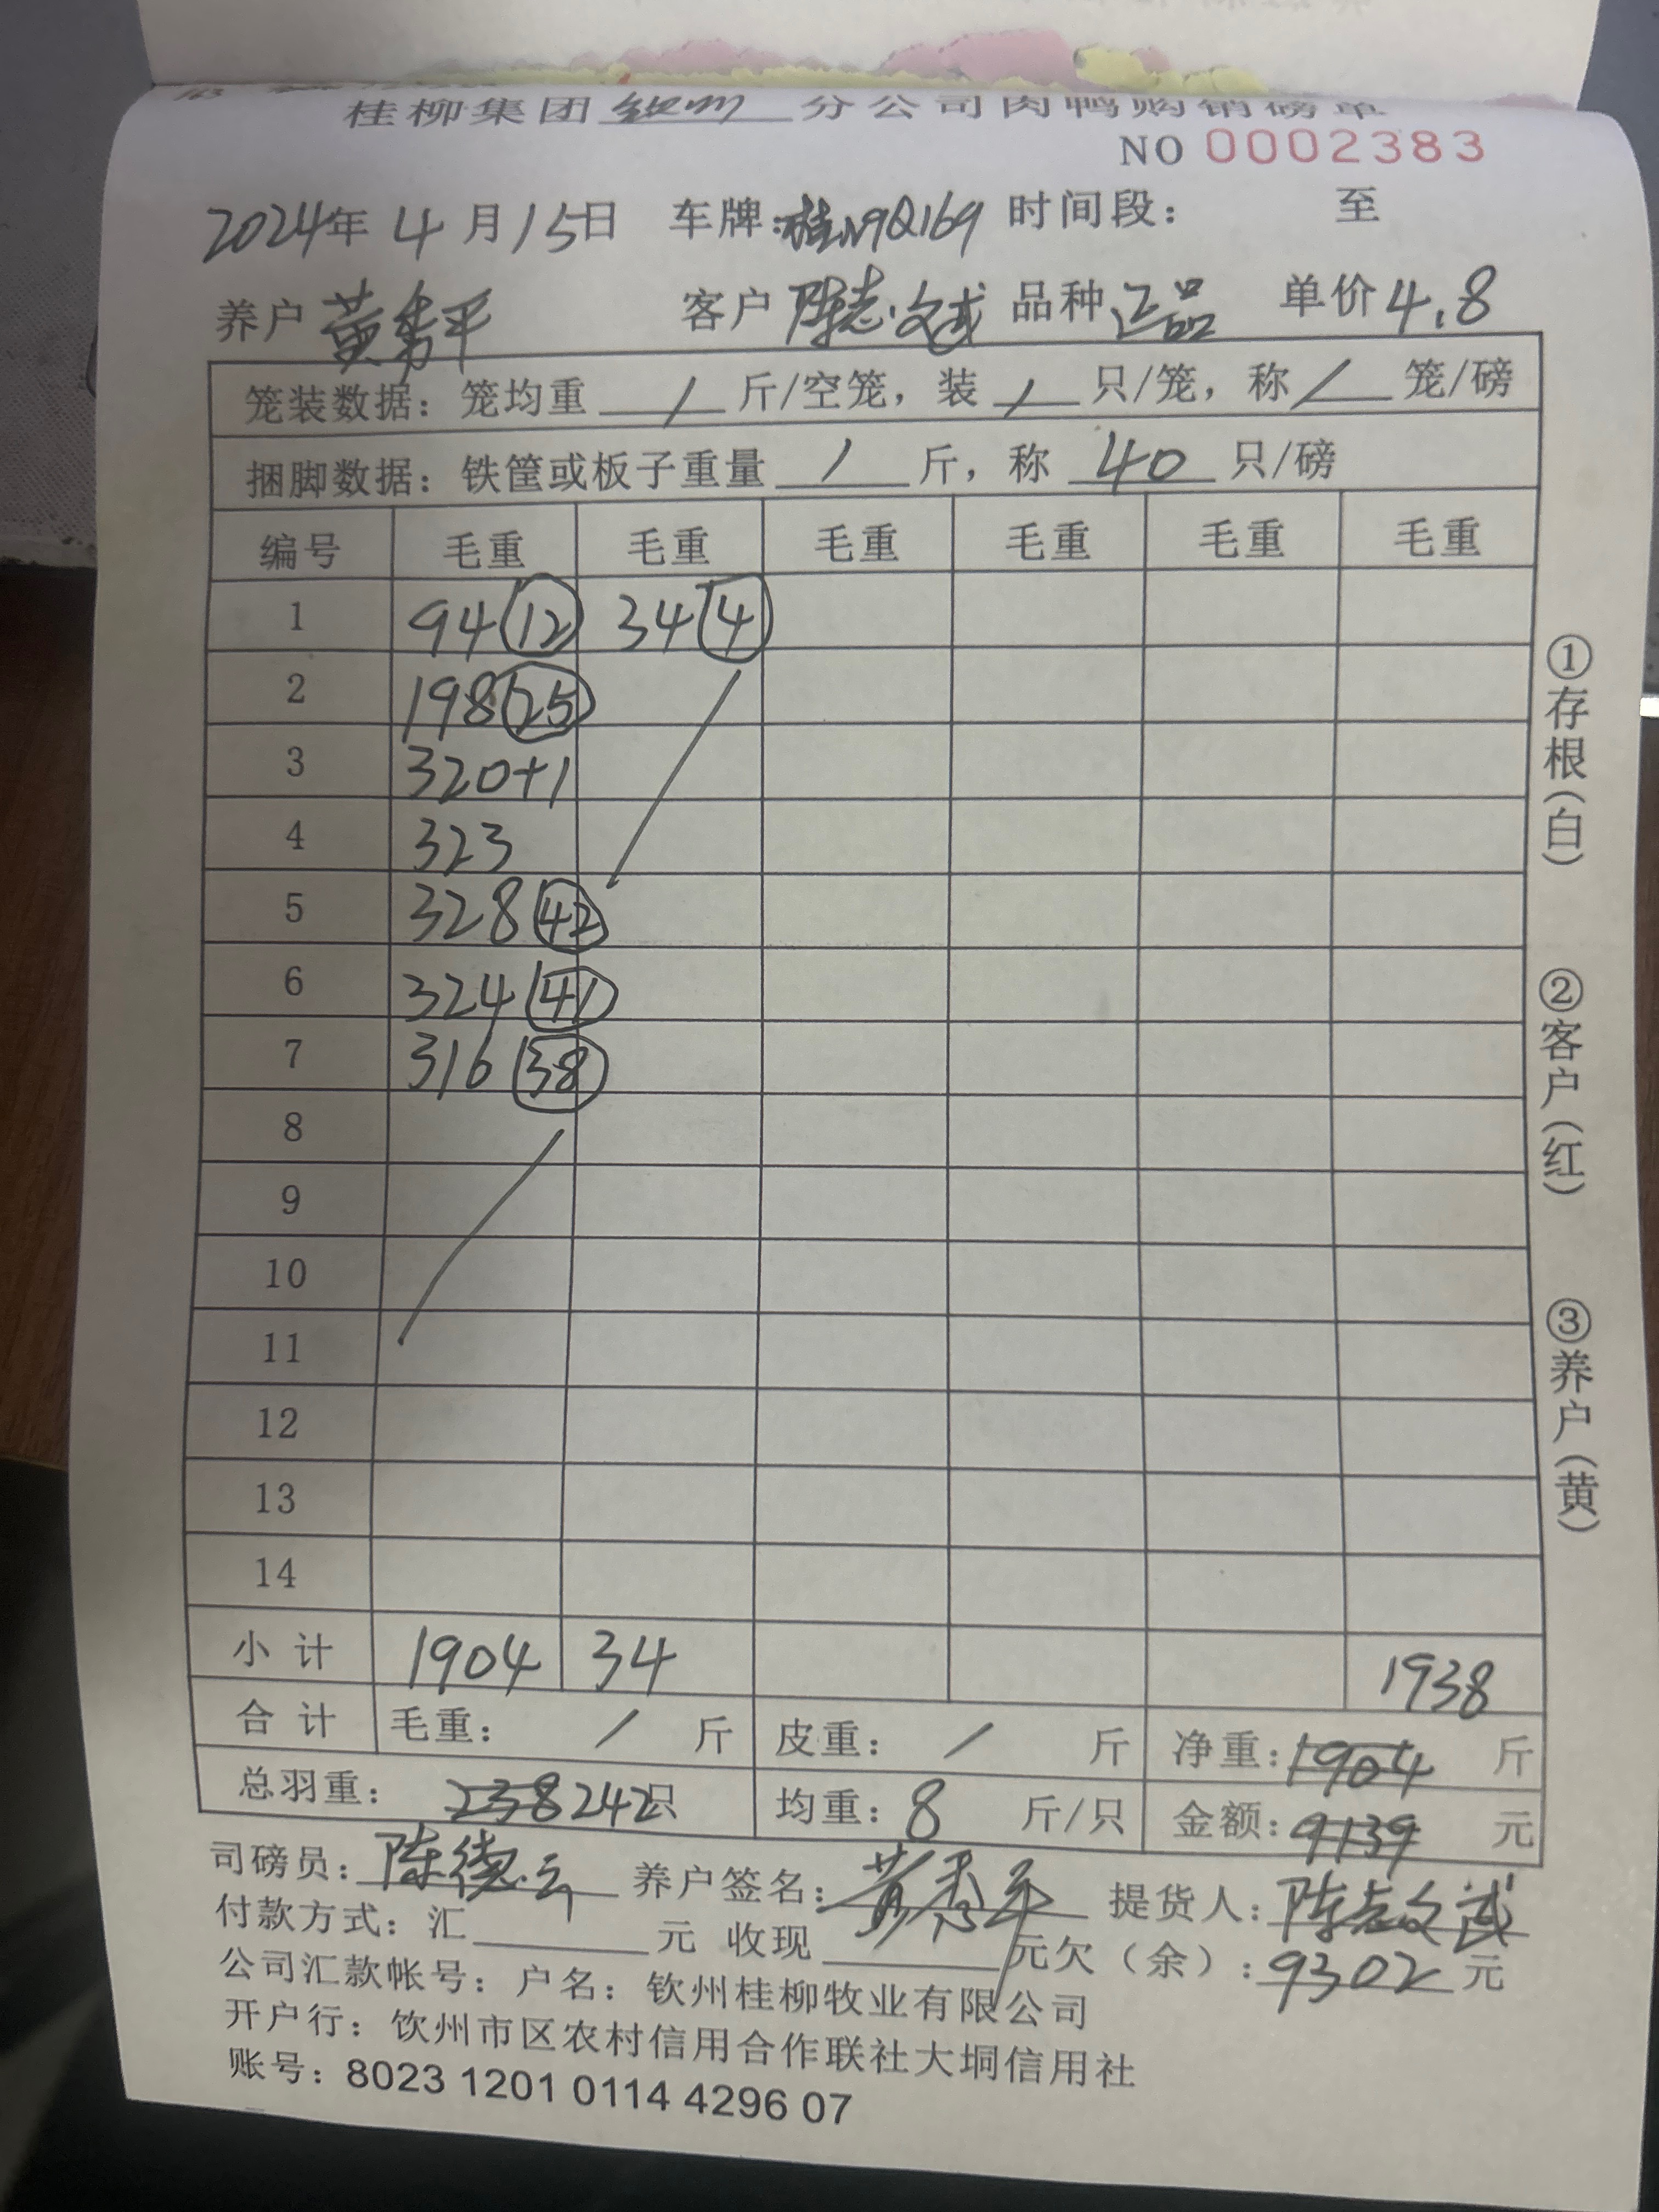 桂柳集团 钦州 分公司肉鸭购销磅单
NO 0002383
2024年 4月15日 车牌:桂N9Q169 时间段: 至
养户 黄秀平 客户 陈志文武 品种 正品 单价 4.8
笼装数据: 笼均重 / 斤/空笼, 装 / 只/笼, 称 / 笼/磅
捆脚数据: 铁筐或板子重量 / 斤, 称 40 只/磅
编号 毛重 毛重 毛重 毛重 毛重 毛重
1 94 12 34 4
2 198 25
3 320+1
4 323
5 328 42
6 324 41
7 316 38
8
9
10
11
12
13
14
小计 1904 34 1938
合计 毛重: / 斤 皮重: / 斤 净重: 1904 斤
总羽重: 238 242只 均重: 8 斤/只 金额: 9139 元
司磅员: 陈德云 养户签名: 黄秀平 提货人: 陈志文武
付款方式: 汇 元 收现 元 欠(余): 9302 元
公司汇款帐号: 户名: 钦州桂柳牧业有限公司
开户行: 钦州市区农村信用合作联社大垌信用社
账号: 8023 1201 0114 4296 07
①存根(白) ②客户(红) ③养户(黄)